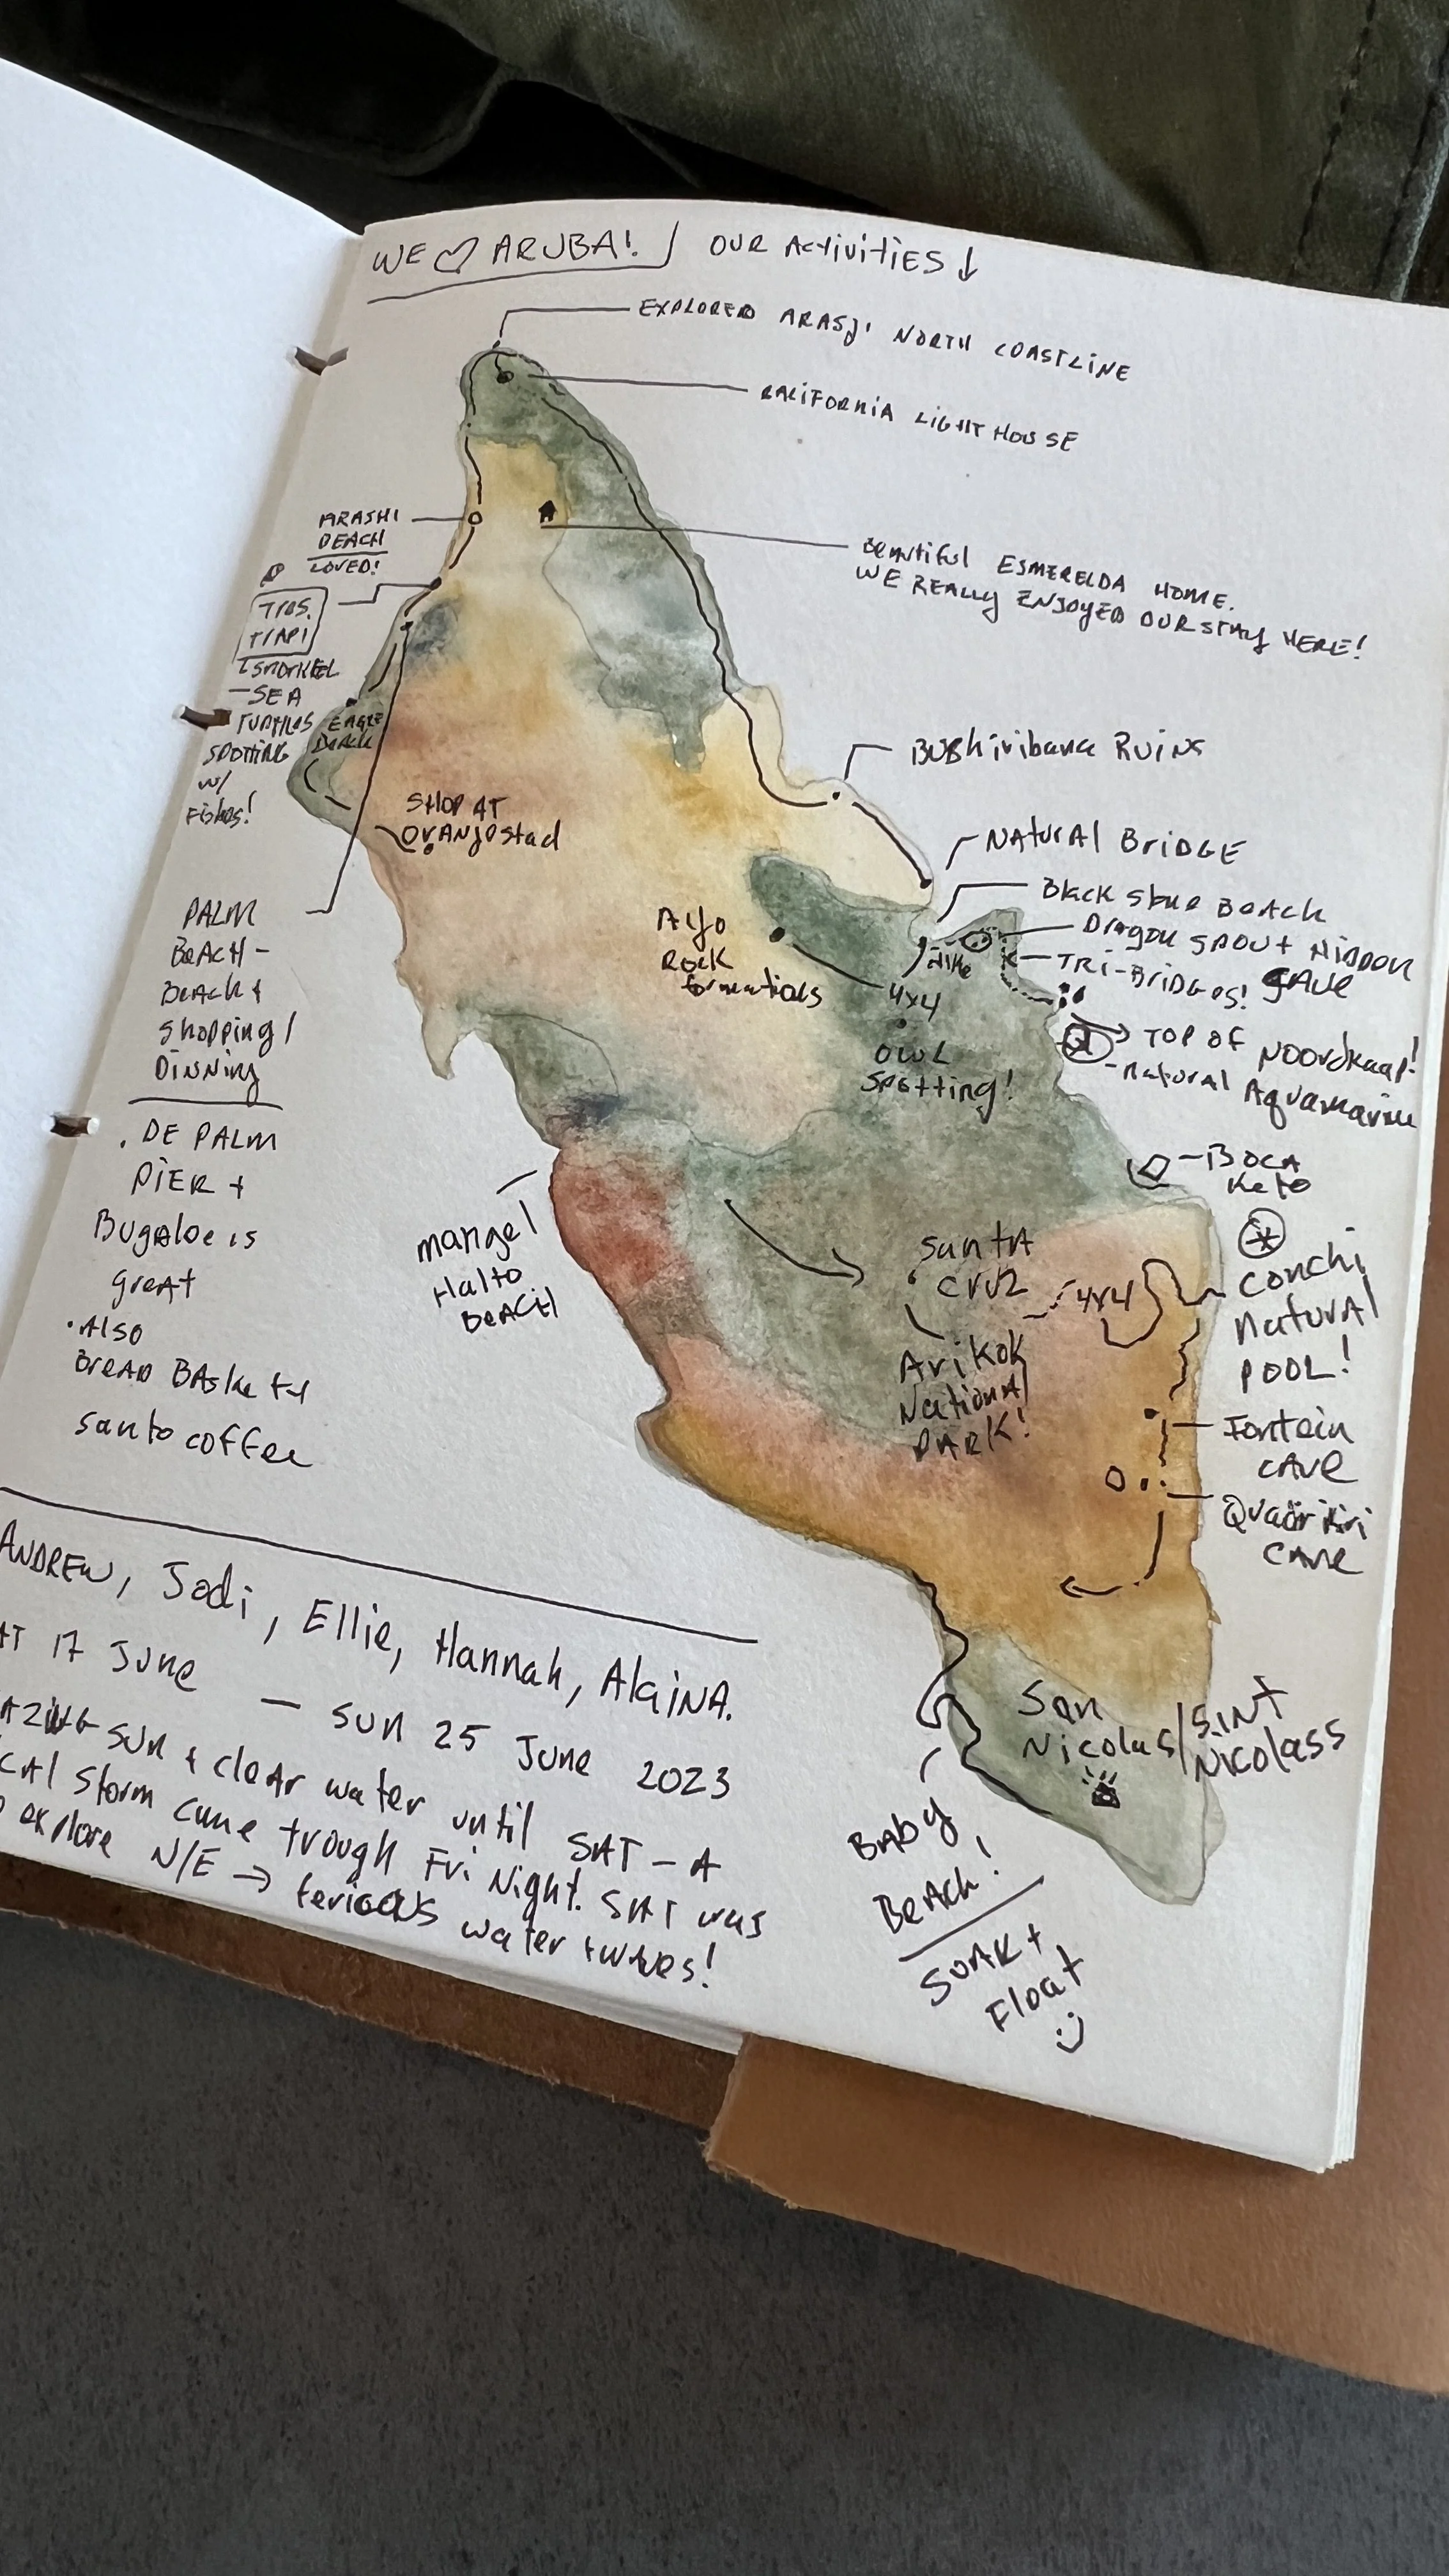 WE ♡ ARUBA!
OUR ACTIVITIES ↓
EXPLORED ARASJI NORTH COASTLINE
CALIFORNIA LIGHT HOUSE
ARASHI
BEACH
LOVED!
BEAUTIFUL ESMERELDA HOME.
WE REALLY ENJOYED OUR STAY HERE!
TRES.
TRAPI
SNORKEL
- SEA
TURTLES
SPOTTING
w/
Fishes!
EAGLE
BEACH
BUShiribana RUINS
SHOP AT
ORANJEstad
NATURAL BRIDGE
Black Stone BEACH
DrAgon SPOUT + HIDDEN
CAVE
Hike
TRI-BRIDGes!
AYO
ROCK
formations
4x4
OWL
SPotting!
TOP OF NOORDkaap!
-natural Aquamarine
PALM
BeAcH -
BeAch +
Shopping /
DINNing
. DE PALM
PIER +
BugAloe is
greAt
• Also
BreAD BAsket +
Santo coffee
BOCA
Keto
mangel
Halto
BeACH
SANTA
CRUZ
4x4
Conchi
NATURAL
POOL!
Arikok
National
PARK!
Fontein
CAVE
QuadiriKiri
CAVE
San
Nicolas/SINT
NICOLASS
BABy
BeAch!
SOAK +
Float
ANDREW, Jodi, Ellie, Hannah, AlaiNA.
17 June — SUN 25 June 2023
SUN & cleAr water until SAT - A
Storm came trough Fri Night. SAT was
explore N/E → ferious water + waves!